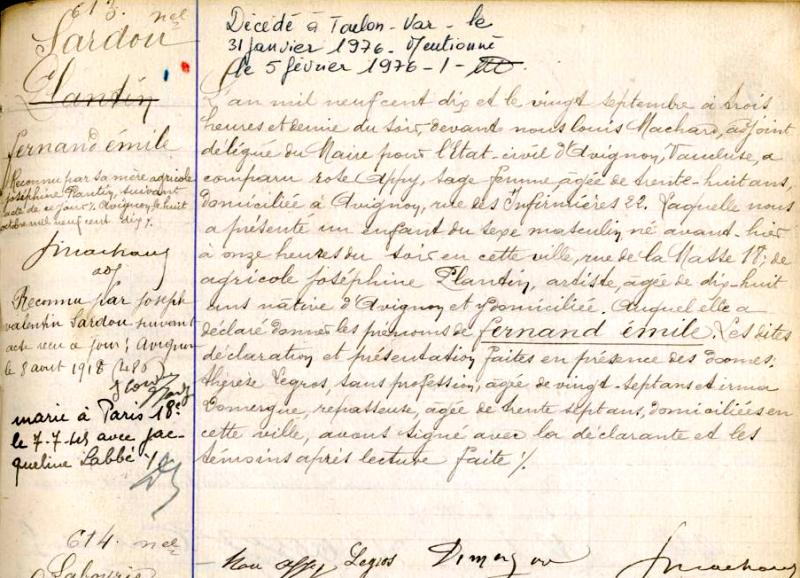 613. nel
Sardou
Plantin
fernand émile
Reconnu par sa mère agricole
joséphine Plantin, suivant
acte de ce jour. Avignon, le huit
octobre mil neuf cent dix.
JMachard
adj
Reconnu par Joseph
valentin Sardou suivant
acte recu ce jour. Avignon
le 8 aout 1918
marié à Paris 18e
le 7-7-45 avec Jac-
queline Labbé
Décédé à Toulon - Var - le
31 janvier 1976 - Mentionné
le 5 février 1976 - 1 -
L'an mil neuf cent dix et le vingt septembre à trois
heures et demie du soir, devant nous louis Machard, adjoint
délégué du Maire pour l'Etat-civil d'Avignon, Vaucluse, a
comparu rose Appy, sage femme, âgée de trente-huit ans,
domiciliée à Avignon, rue des Infirmières 22. Laquelle nous
a présenté un enfant du sexe masculin né avant-hier
à onze heures du soir en cette ville, rue de la Masse 18; de
agricole joséphine Plantin, artiste, âgée de dix-huit
ans native d'Avignon et y domiciliée. Auquel elle a
déclaré donner les prénoms de fernand émile. Les dites
déclaration et présentation faites en présence des dames:
thérèse Legros, sans profession, âgée de vingt-sept ans et irma
Domergue, repasseuse, âgée de trente sept ans, domiciliées en
cette ville, avons signé avec la déclarante et les
témoins après lecture faite ./.
614. nel
Appy Legros Domergue JMachard